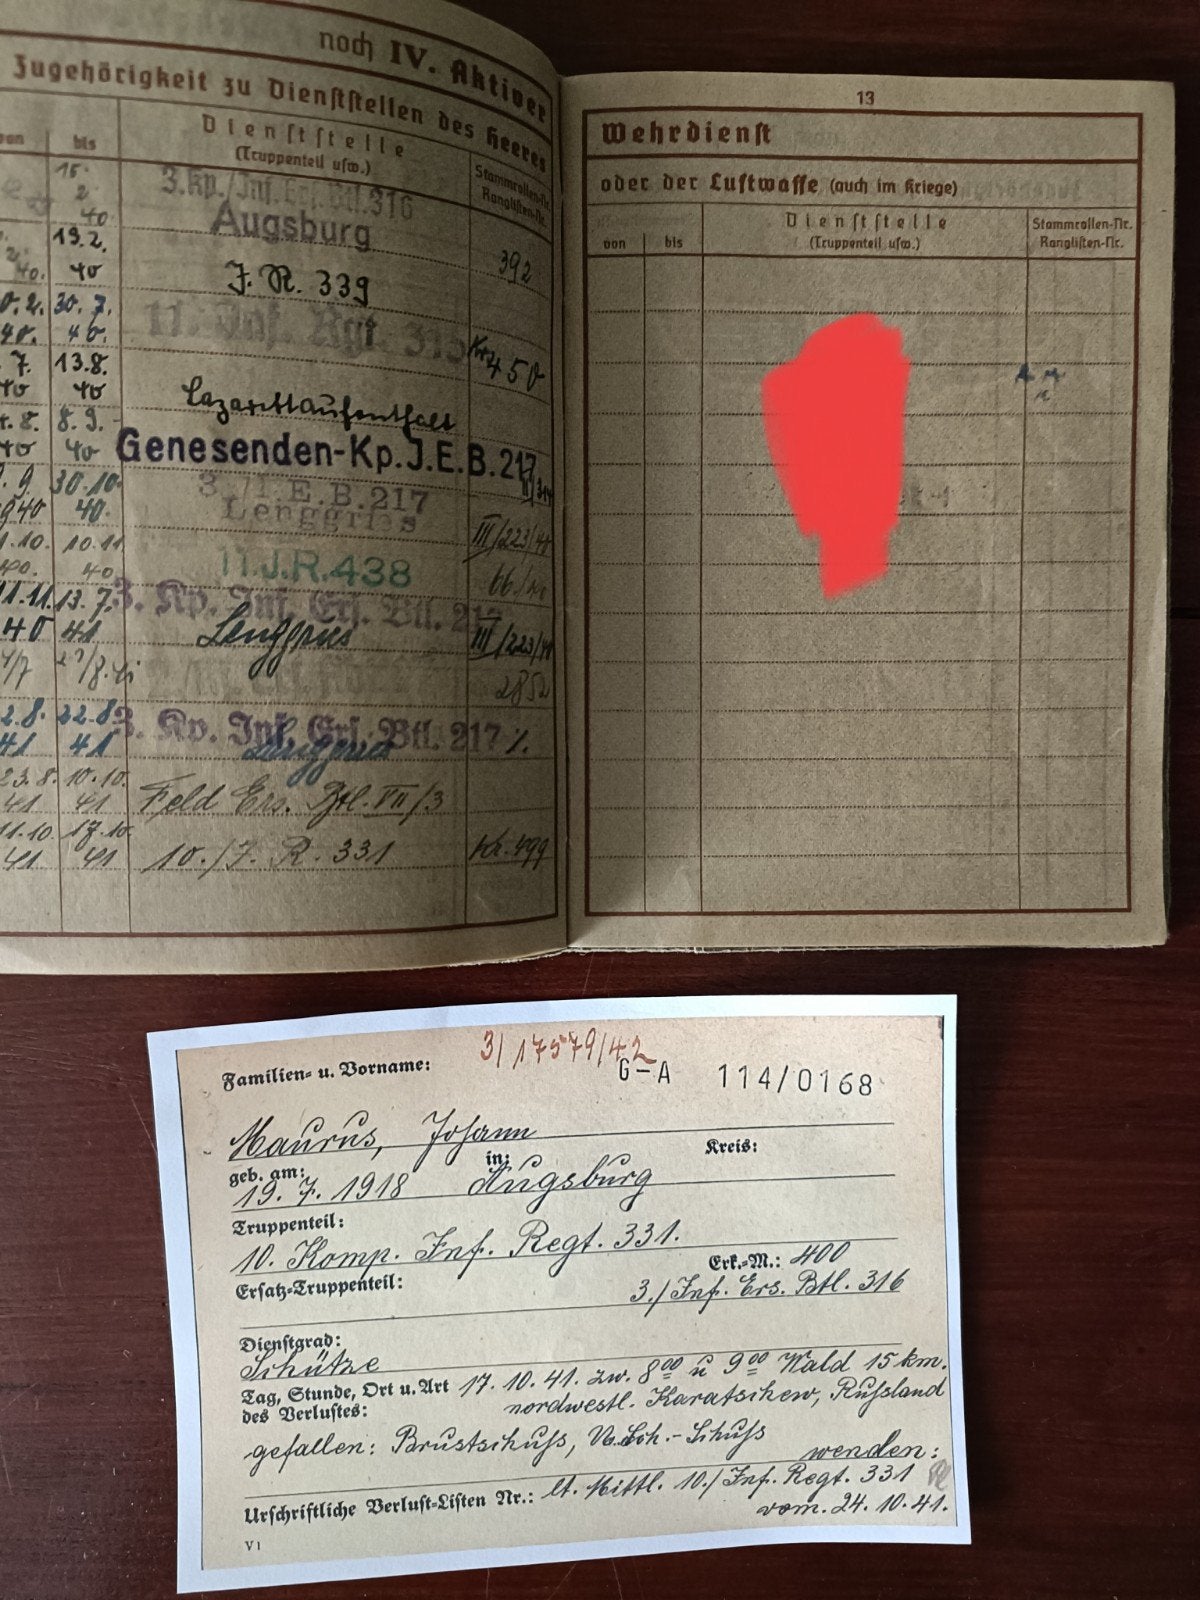 noch IV. Aktiver
Zugehörigkeit zu Dienststellen des Heeres
von bis Dienststelle
(Truppenteil usw.) Stammrollen-Nr.
Ranglisten-Nr.
15. 2. 40 3.Kp./Inf.Ers.Btl.316
Augsburg
40. 19.2. 40 J. R. 339 392
40. 30. 7. 40. 11. Inf. Rgt.
7. 40 13.8. 40 Lazarettaufenthalt
8. 40 8. 9. 40 Genesenden-Kp.J.E.B.217
9. 1940 30.10. 40. 3./I.E.B.217
Lenggries III/223/40
.10. 40. 10.11. 40 11.J.R.438 66/40
11.11. 40 13. 7. 41 3. Kp. Inf. Ers. Btl. 217
Lenggries III/223/40
2852
2.8. 41 22.8. 41 3. Kp. Inf. Ers. Btl. 217 %.
Lenggries
23.8. 41 10.10. 41 Feld Ers. Btl. VII/3
11.10. 41 17.10. 41 10./J. R. 331 Kr. 499
13
Wehrdienst
oder der Luftwaffe (auch im Kriege)
von bis Dienststelle
(Truppenteil usw.) Stammrollen-Nr.
Ranglisten-Nr.
3/17579/42
Familien- u. Vorname: G-A 114/0168
Maurus, Johann
geb. am: in: Kreis:
19. 7. 1918 Augsburg
Truppenteil:
10. Komp. Inf. Regt. 331.
Erk.-M.: 400
Ersatz-Truppenteil: 3./Inf. Ers. Btl. 316
Dienstgrad:
Schütze
Tag, Stunde, Ort u. Art 17. 10. 41. zw. 8⁰⁰ u 9⁰⁰ Wald 15 km.
des Verlustes: nordwestl. Karatschew, Russland
gefallen: Brustschuss, -Schuss
wenden:
Urschriftliche Verlust-Listen Nr.: lt. Mittl. 10./Inf. Regt. 331
vom. 24. 10. 41.
V1